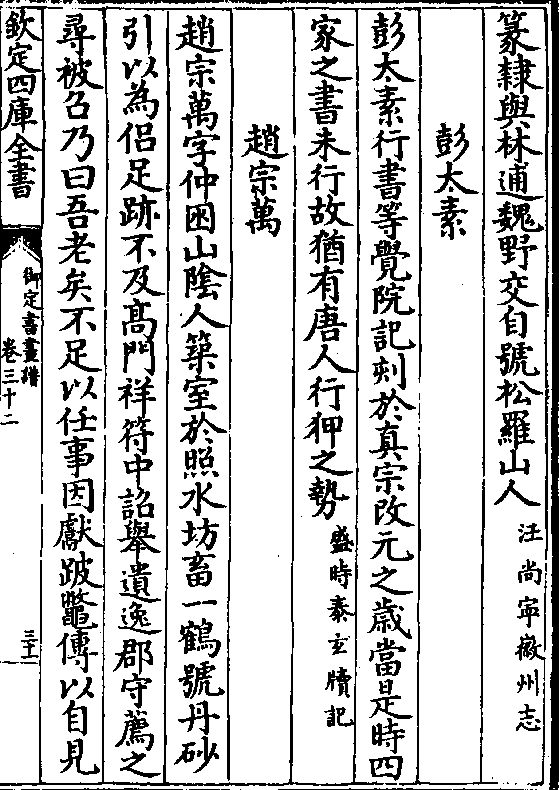 篆隸與林逋魏野交自號松羅山人汪尚寜徽州志
彭太素
彭太素行書等覺院記刻於真宗改元之歳當是時四
家之書未行故猶有唐人行狎之勢盛時泰玄牘記
趙宗萬
趙宗萬字仲困山隂人築室於照水坊畜一鶴號丹砂
引以為侣足跡不及髙門祥符中詔舉遺逸郡守薦之
尋被召乃曰吾老矣不足以任事因獻跛鼈傳以自見
欽定四庫全書
御定書畫譜
卷三十二
三十一